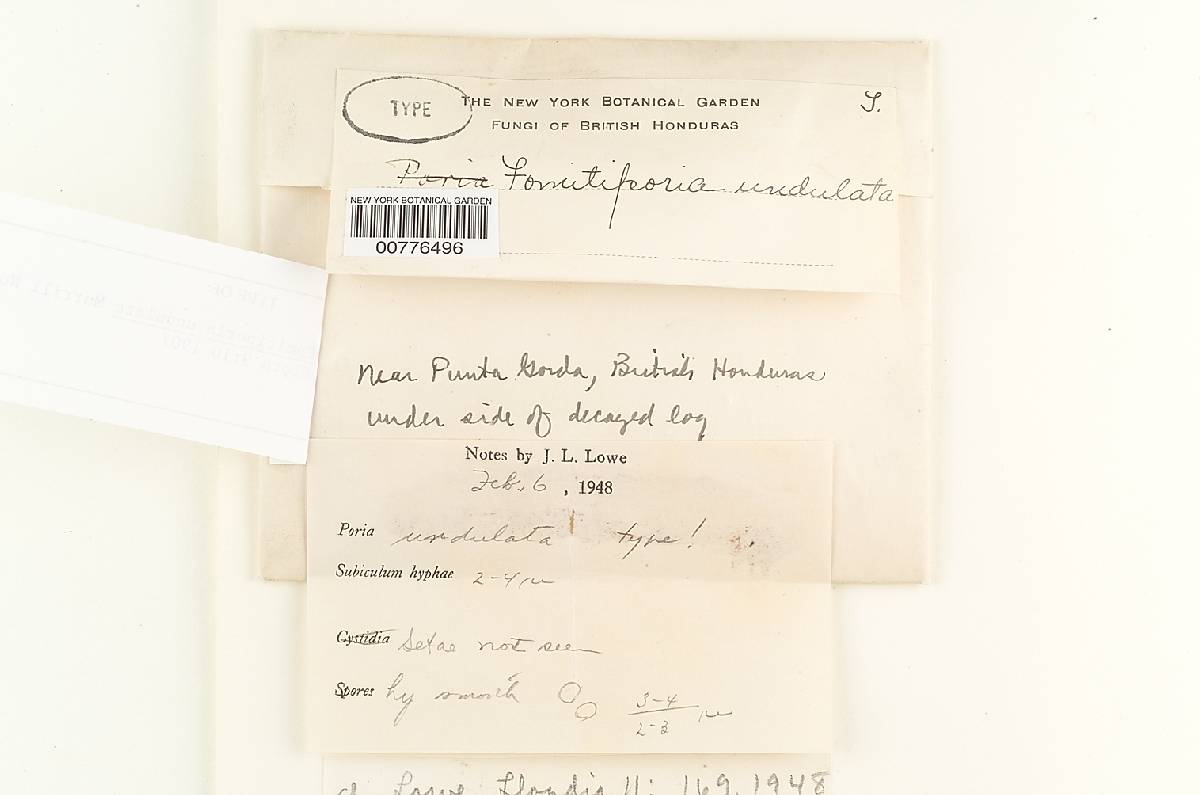 TYPE
THE NEW YORK BOTANICAL GARDEN
S.
FUNGI OF BRITISH HONDURAS
Poria Fomitiporia undulata
NEW YORK BOTANICAL GARDEN
00776496
Near Punta Gorda, British Honduras
under side of decayed log
Notes by J. L. Lowe
Feb. 6, 1948
Poria undulata type!
Subiculum hyphae 2-4 μ
Cystidia Setae not seen
Spores hy smooth 3-4
2-3 μ
Lowe, Lloydia 11: 169. 1948